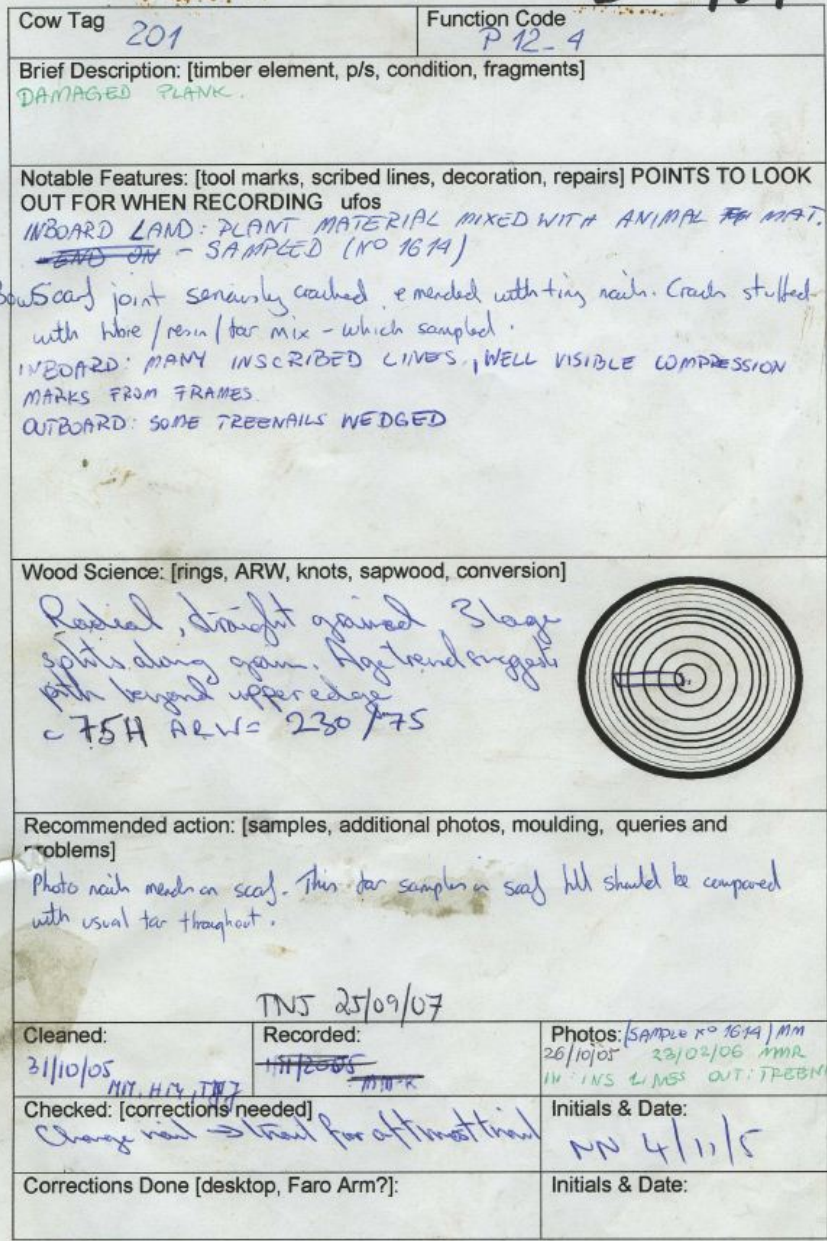 Cow Tag
201
Function Code
P 12_4
Brief Description: [timber element, p/s, condition, fragments]
DAMAGED PLANK.
Notable Features: [tool marks, scribed lines, decoration, repairs] POINTS TO LOOK
OUT FOR WHEN RECORDING ufos
INBOARD LAND: PLANT MATERIAL MIXED WITH ANIMAL MAT.
END ON - SAMPLED (Nº 1614)
Bow Scarf joint seriously cracked, emended with tiny nails. Cracks stuffed
with fibre/resin/tar mix - which sampled.
INBOARD: MANY INSCRIBED LINES, WELL VISIBLE COMPRESSION
MARKS FROM FRAMES
OUTBOARD: SOME TREENAILS WEDGED
Wood Science: [rings, ARW, knots, sapwood, conversion]
Radial, straight grained 3 large
splits along grain. Age trend suggests
pith beyond upper edge
c 75H ARW= 230/75
Recommended action: [samples, additional photos, moulding, queries and
problems]
Photo nail mends on scarf. This tar samples in scarf fill should be compared
with usual tar throughout.
TNJ 25/09/07
Cleaned:
31/10/05
MM, HM, TNJ
Recorded:
Photos: (SAMPLE Nº 1614) MM
26/10/05 23/02/06 MMR
IN: INS LINES OUT: TREEN
Checked: [corrections needed]
Change nail → tnail for aftmost tnail
Initials & Date:
NN 4/11/5
Corrections Done [desktop, Faro Arm?]:
Initials & Date: